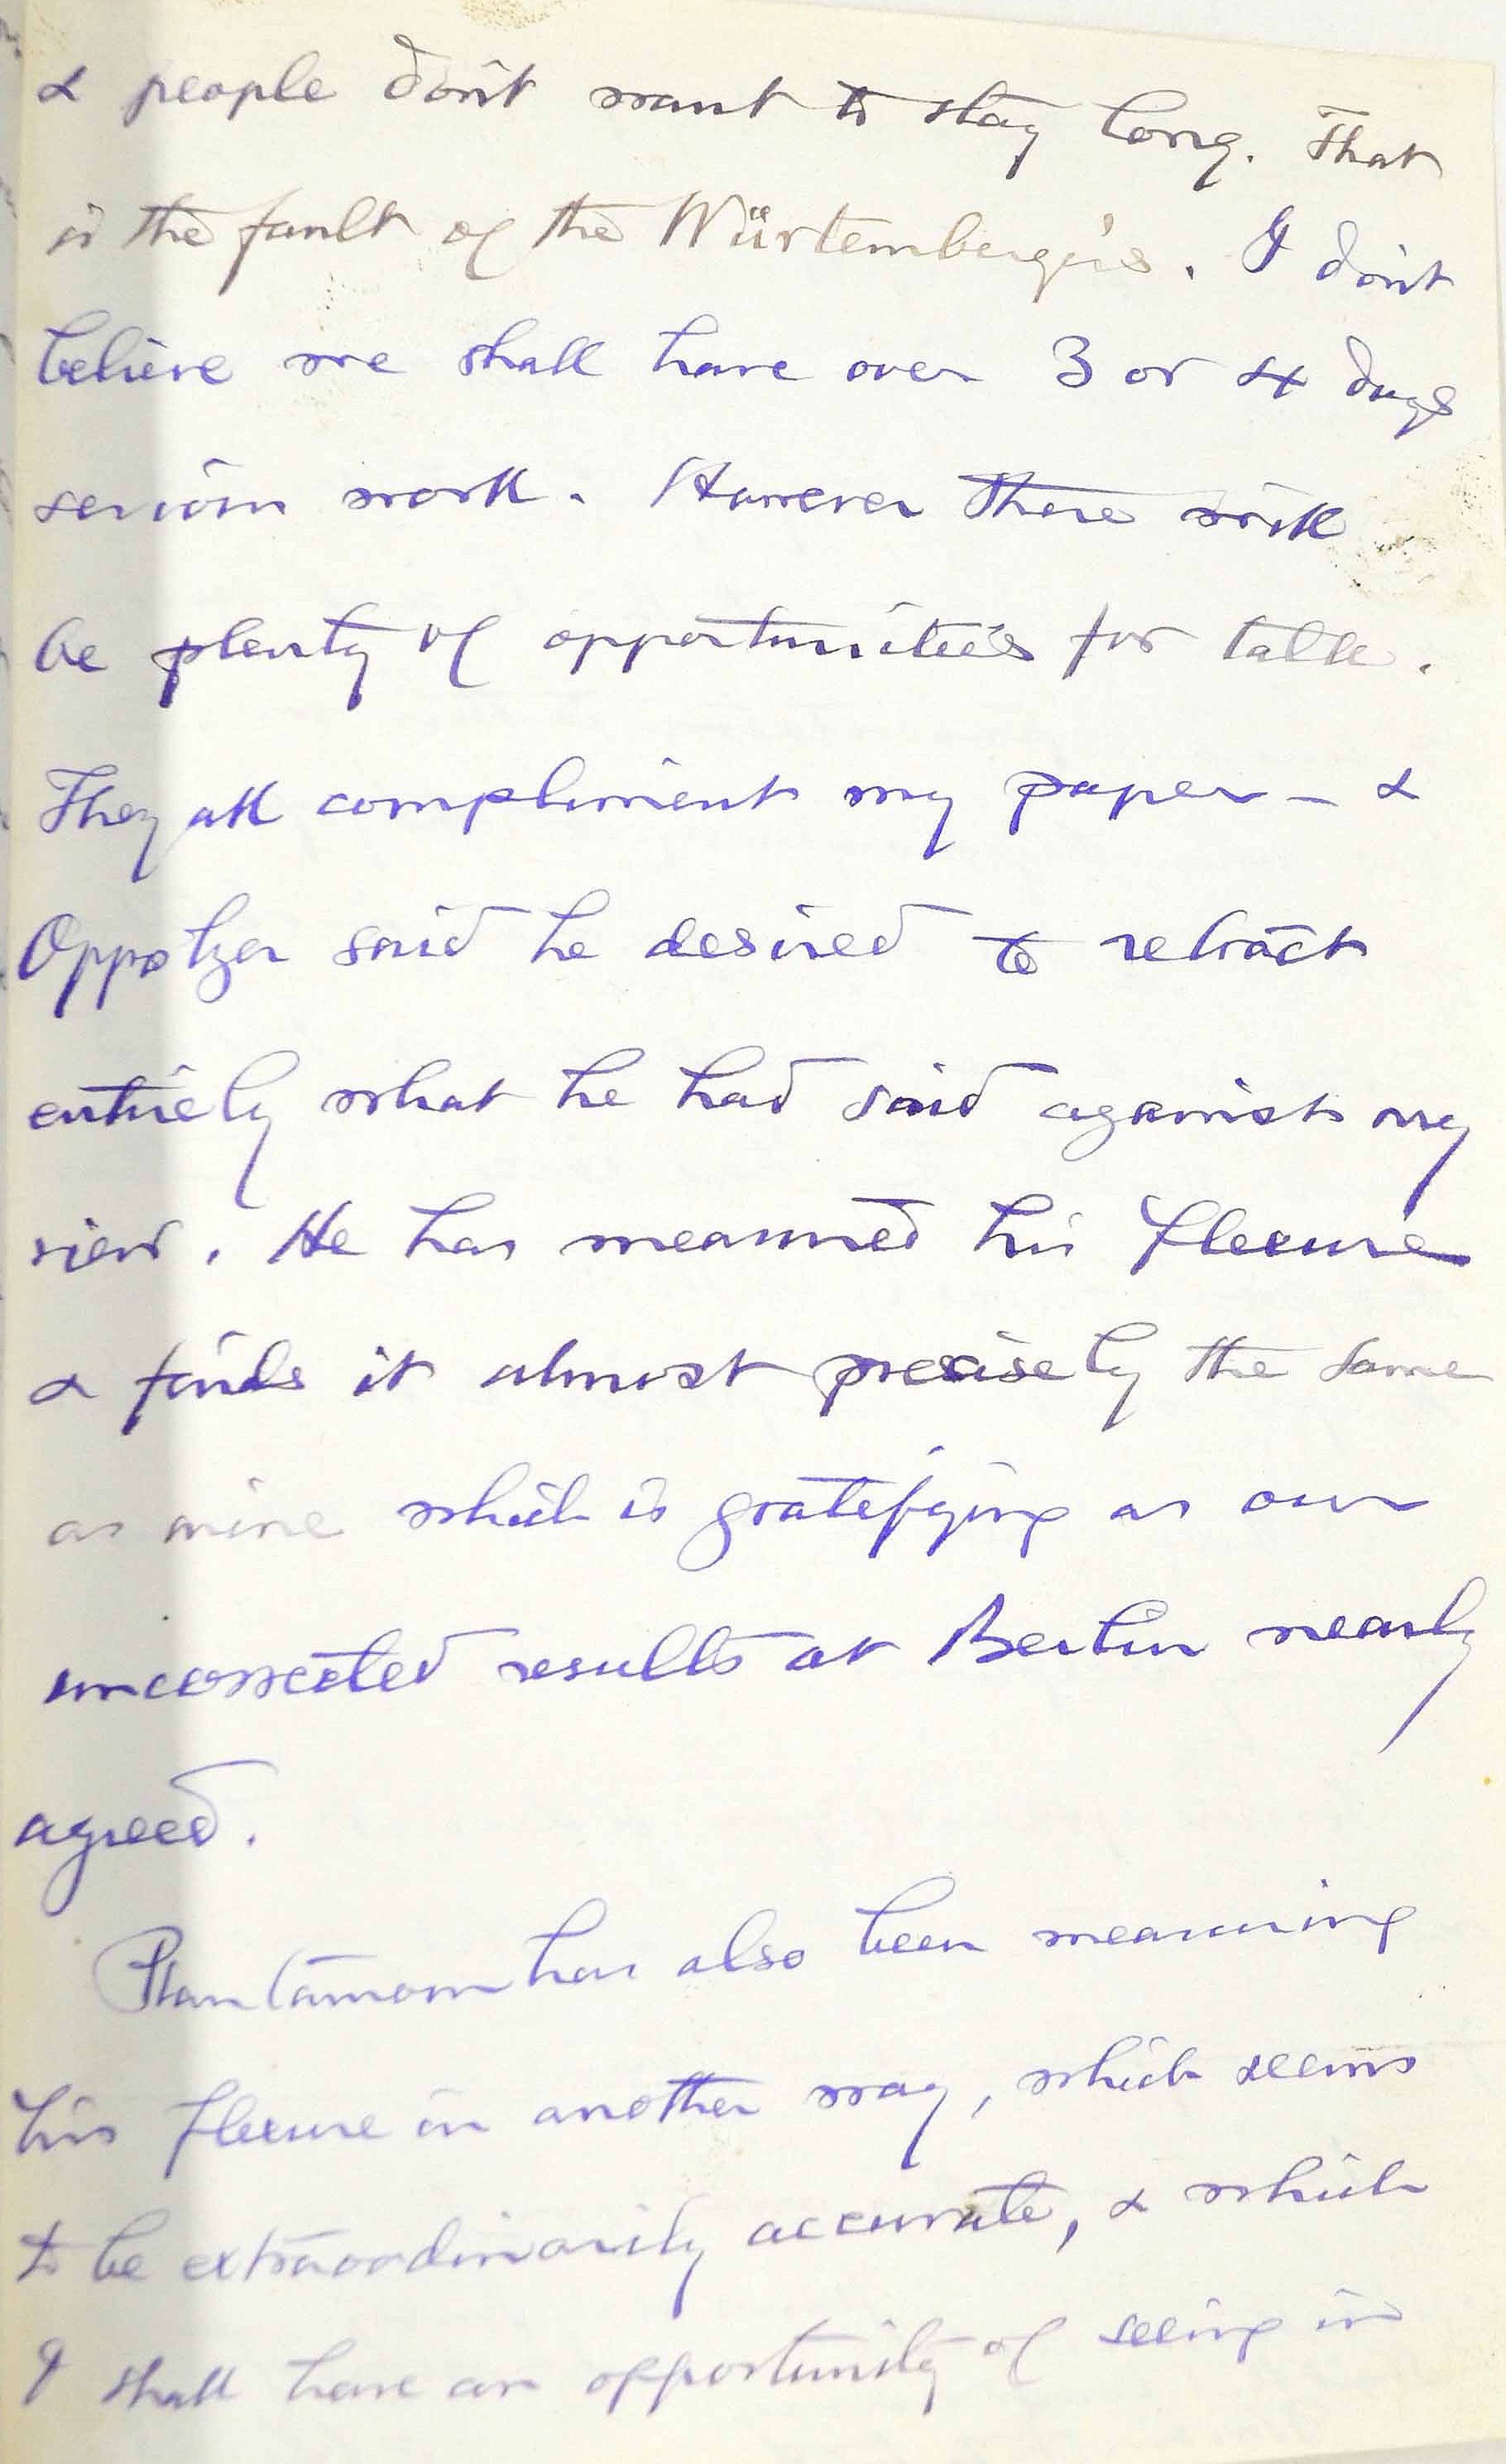 & people don't want to stay long. That
is the fault of the Würtembergers. I don't
believe we shall have over 3 or 4 days
serious work. However there will
be plenty of opportunities for talk.
They all compliment my paper – &
Oppolzer said he desired to retract
entirely what he had said against my
view. He has measured his flexure
& finds it almost precisely the same
as mine which is gratifying as our
uncorrected results at Berlin nearly
agreed.
Plantamour has also been measuring
his flexure in another way, which seems
to be extraordinarily accurate, & which
I shall have an opportunity of seeing in